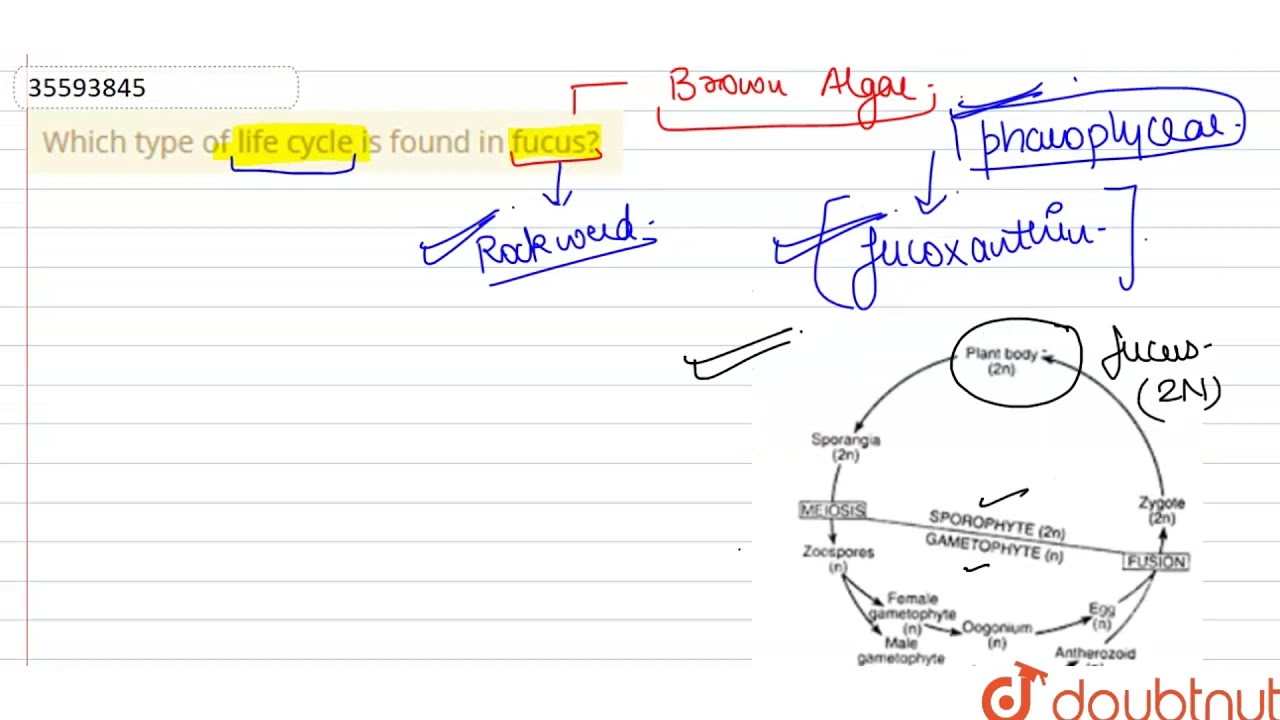 35593845
Brown Algae.
Which type of life cycle is found in fucus?
phaeophyceae.
Rockweed.
fucoxanthin
Plant body
(2n)
fucus
(2N)
Sporangia
(2n)
MEIOSIS
SPOROPHYTE (2n)
GAMETOPHYTE (n)
Zygote
(2n)
Zoospores
(n)
FUSION
Female
gametophyte
(n)
Oogonium
(n)
Egg
(n)
Male
gametophyte
Antherozoid
doubtnut